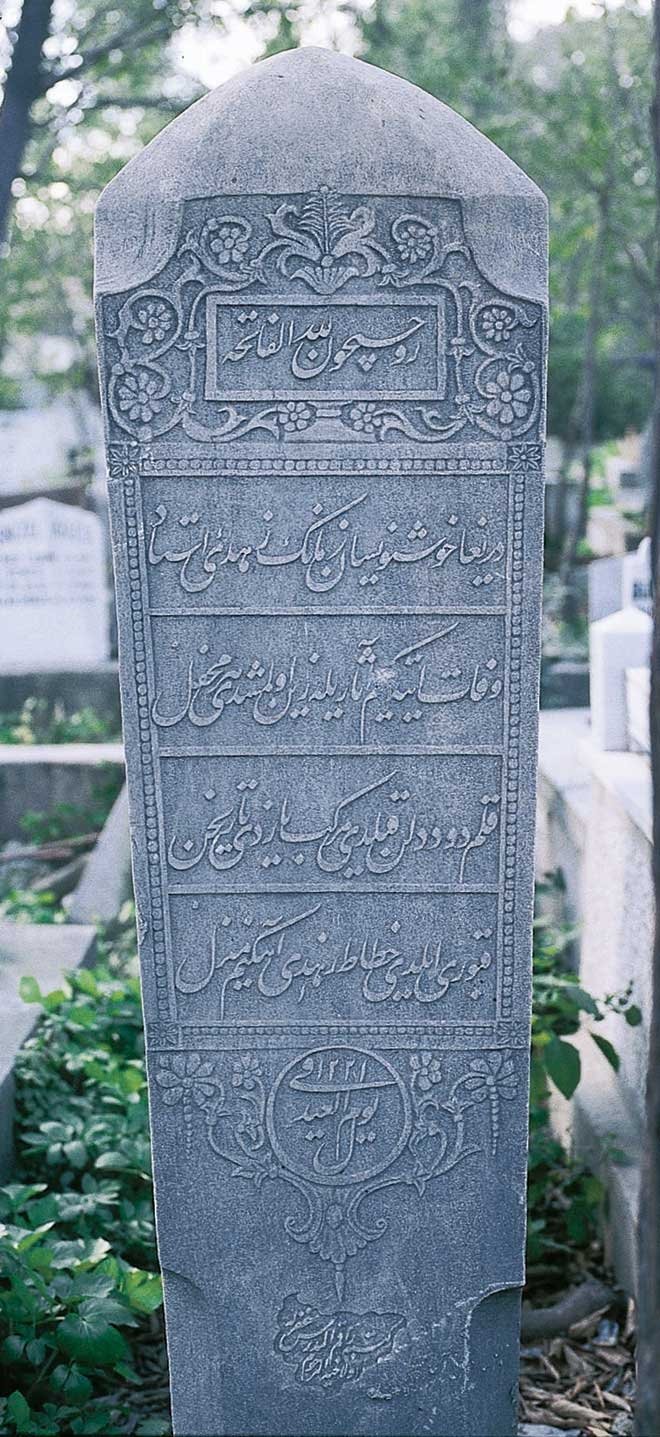 روحیچون لله الفاتحه
دریغا خوشنویسان زمانك زهدی استاد
وفات ایتدی کیم آثاریله زین اولمشدی هر محفل
قلم دود دلن قیلدی مرکب یازدی تاریخن
قبوری ایلدی خطاط زهدی آه کیم منزل
فی ١٢٢١
یوم العید